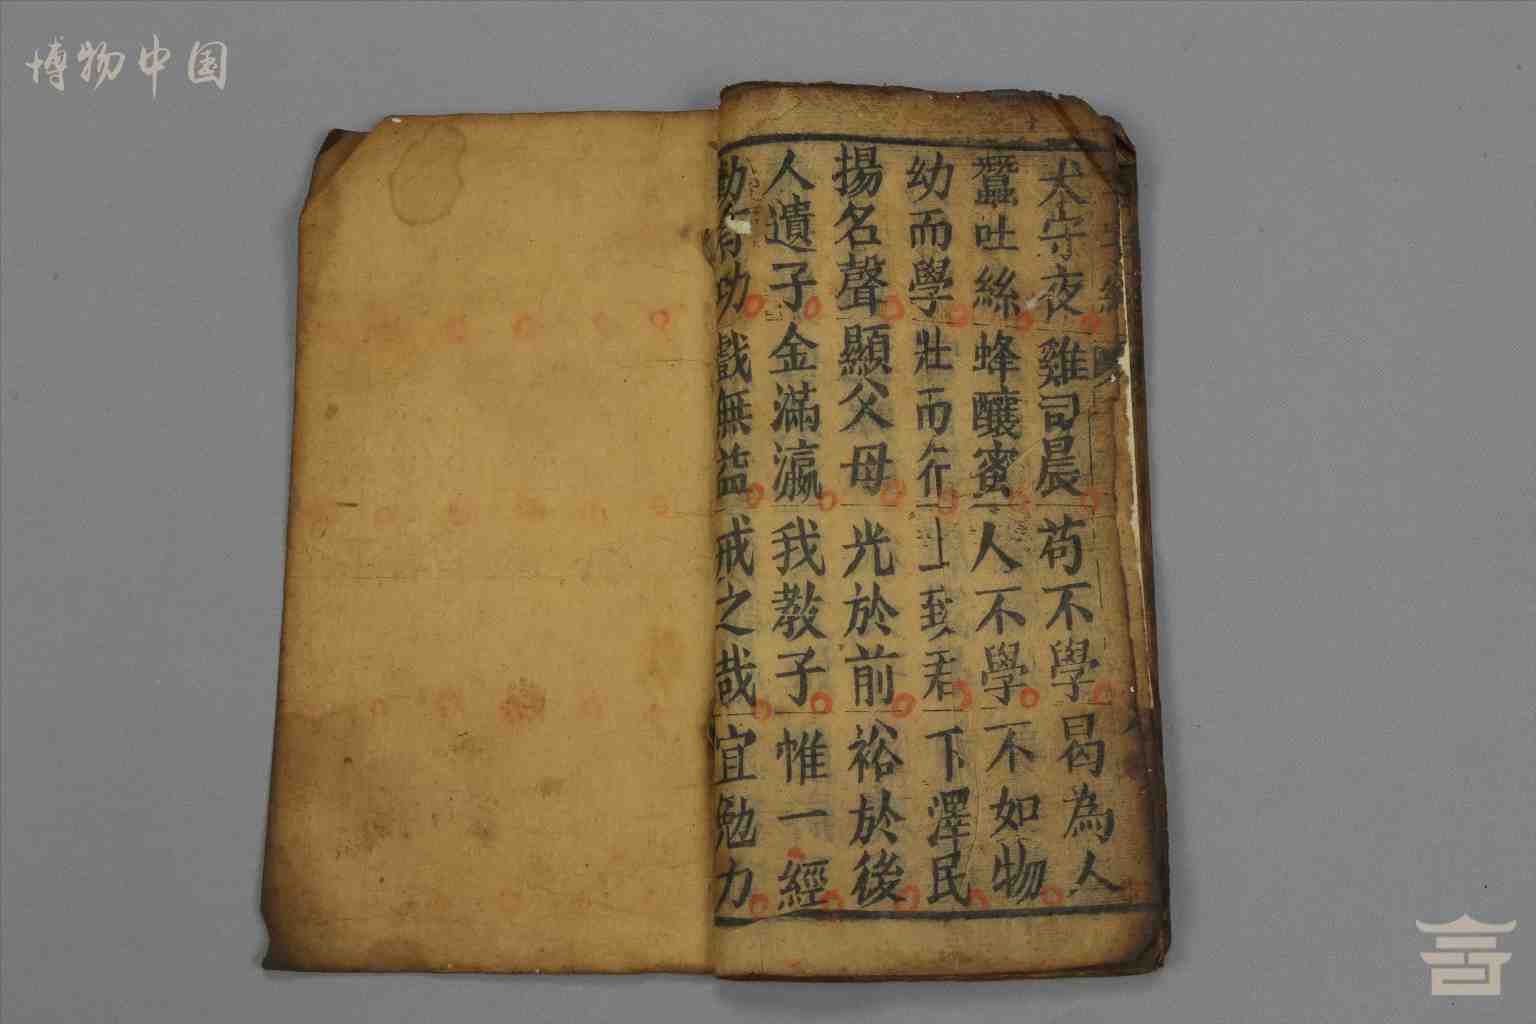 博物中国
犬守夜 雞司晨 苟不學 曷為人
蠶吐絲 蜂釀蜜 人不學 不如物
幼而學 壯而行 上致君 下澤民
揚名聲 顯父母 光於前 裕於後
人遺子 金滿瀛 我教子 惟一經
勤有功 戲無益 戒之哉 宜勉力